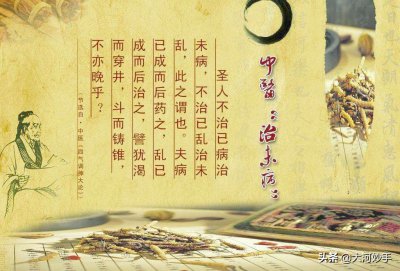 中醫“治未病”
圣人不治已病治
未病，不治已乱治未
乱，此之谓也。夫病
已成而后药之，乱已
成而后治之，譬犹渴
而穿井，斗而铸锥，
不亦晚乎？
（节选自·中医《四气调神大论》）
头条 @大河妙手